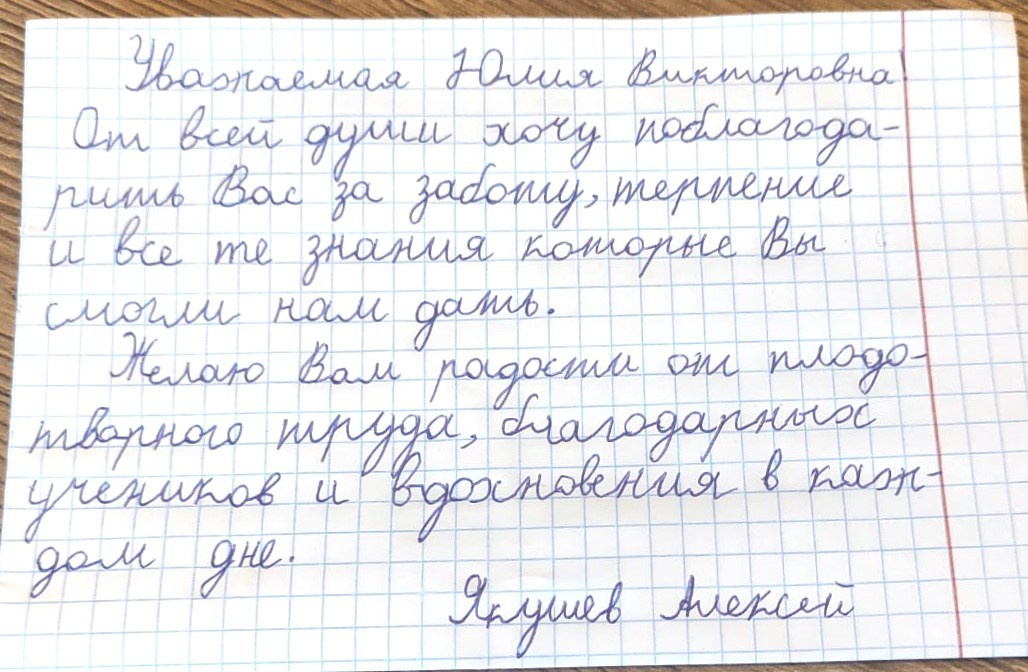 Уважаемая Юлия Викторовна!
От всей души хочу поблагода-
рить Вас за заботу, терпение
и все те знания которые Вы
смогли нам дать.
Желаю Вам радости от плодо-
творного труда, благодарных
учеников и вдохновения в каж-
дом дне.
Якушев Алексей